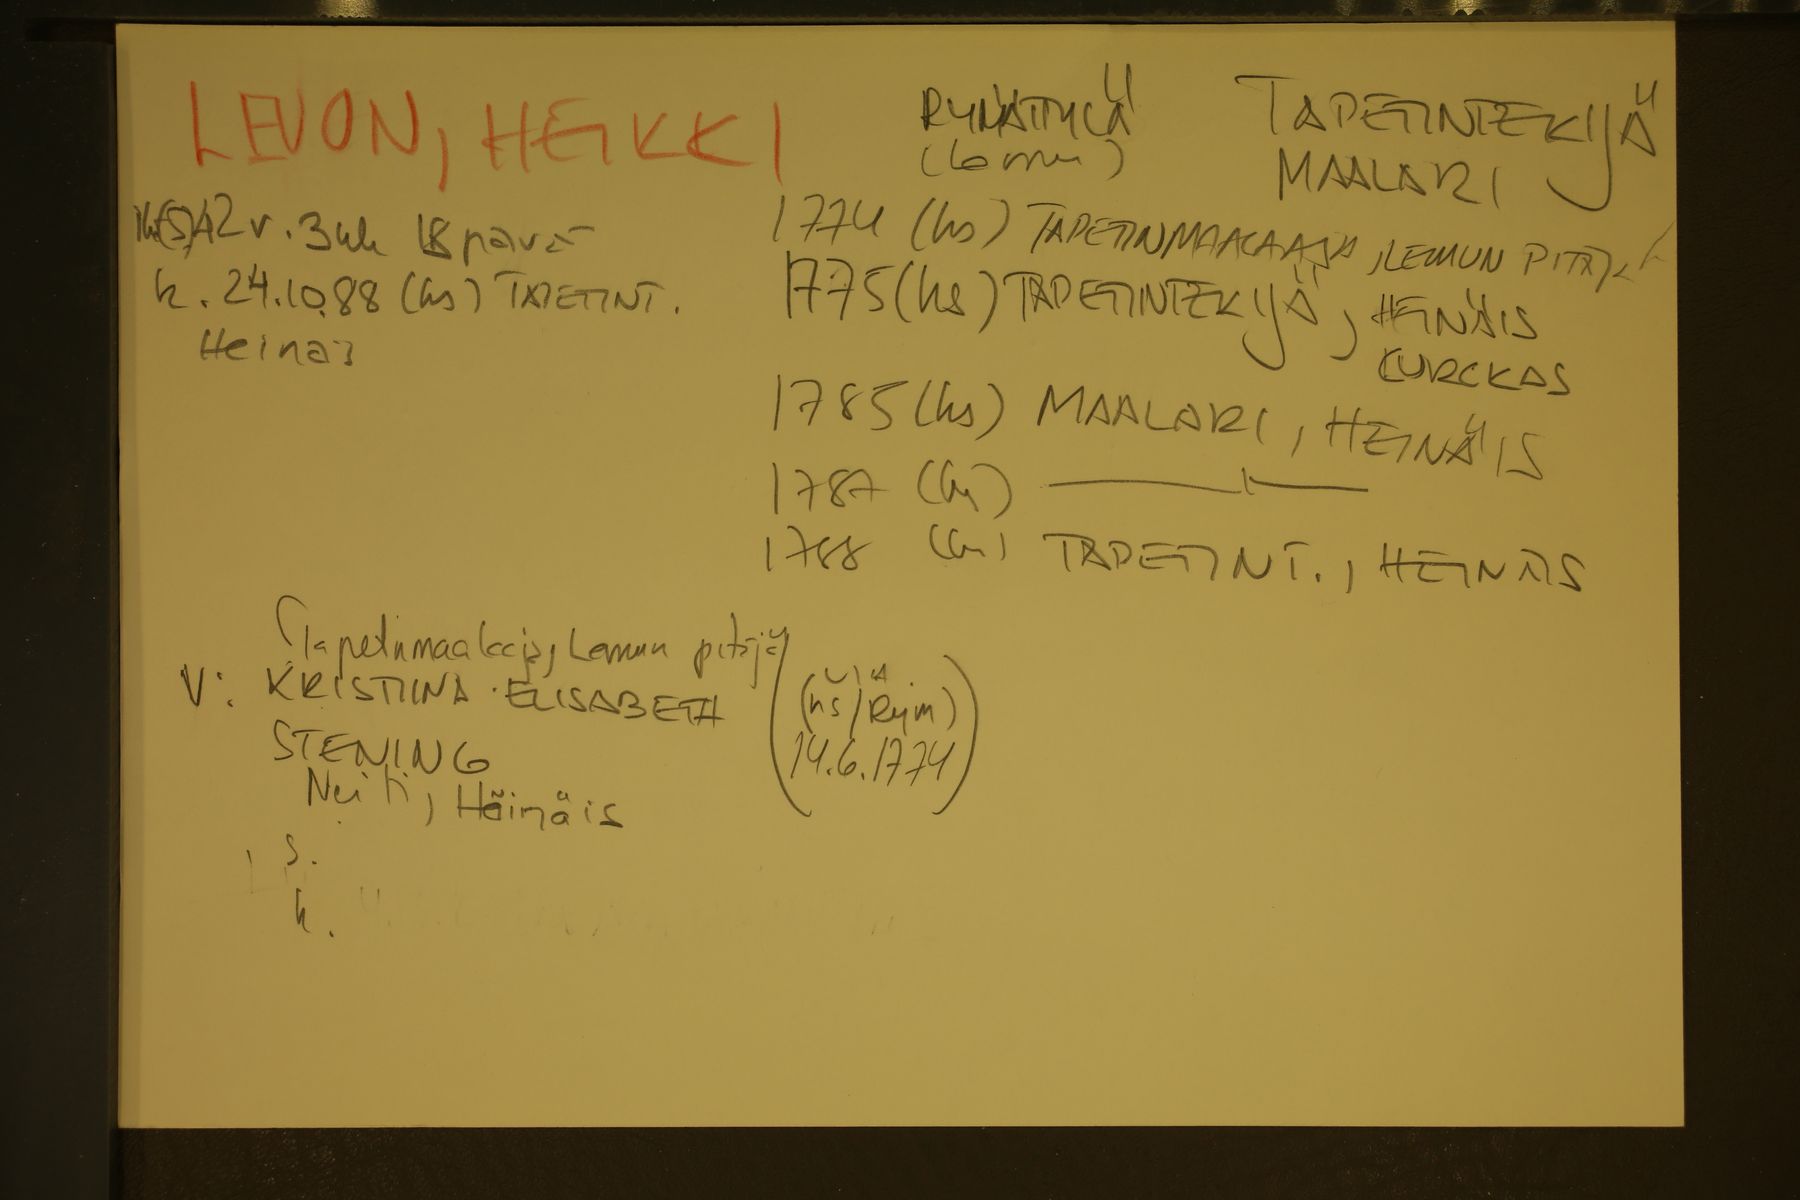 LEVON, HEIKKI
RYMÄTTYLÄ
(Lemu)
TAPETINTEKIJÄ
MAALARI
42 v. 3 kk 18 päivä
k. 24.10.88 (hs) TAPETINT.
Heinäs
1774 (hs) TAPETINMAALAAJA, LEMUN PITÄJÄ
1775 (hs) TAPETINTEKIJÄ, HEINÄIS
KURCKAS
1785 (hs) MAALARI, HEINÄIS
1787 (hs) —— " ——
1788 (hs) TAPETINT., HEINÄIS
(Tapetinmaalaaja, Lemun pitäjä)
V: KRISTIINA ELISABETH
STENING
Neiti, Heinäis
(hs/Rym)
14.6.1774
s.
k.